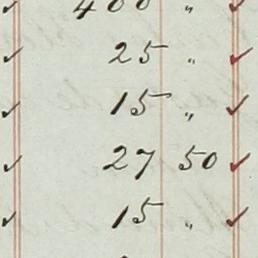 400 "
25 "
15 "
27 50
15 "